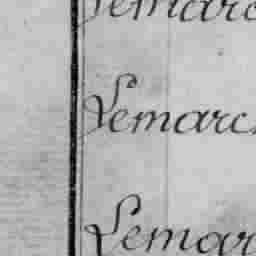 Lemarc
Lemarc
Lemar